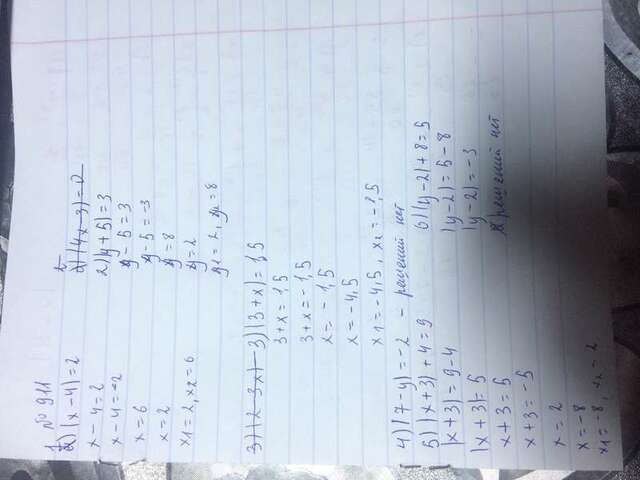 № 911
1) |x-4|=2
x-4=2
x-4=-2
x=6
x=2
x1=2, x2=6
2) |4x-3|=0
2) |y+5|=3
y-5=3
y-5=-3
y=8
y=2
y1=2, y2=8
3) |2-3x|
3) |3+x|=1,5
3+x=1,5
3+x=-1,5
x=-1,5
x=-4,5
x1=-4,5, x2=-1,5
4) |7-y|=-2 - решений нет
5) |x+3|+4=9
|x+3|=9-4
|x+3|=5
x+3=5
x+3=-5
x=2
x=-8
x1=-8, x2=2
6) |y-2|+8=5
|y-2|=5-8
|y-2|=-3
решений нет